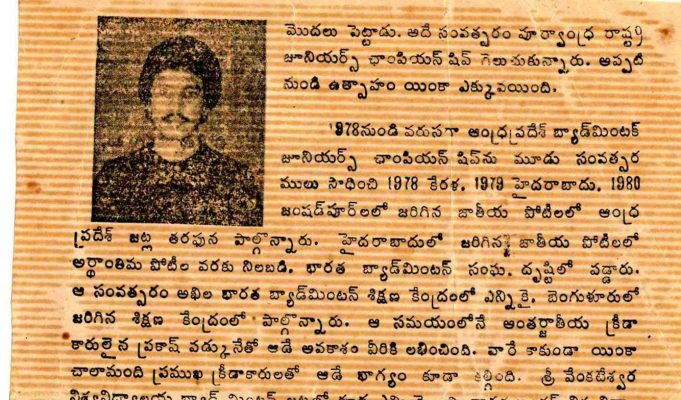 మొదలు పెట్టాడు. అదే సంవత్సరం పూర్వాంధ్ర రాష్ట్ర
జూనియర్స్ ఛాంపియన్ షిప్ గెలుచుకున్నారు. అప్పటి
నుండి ఉత్సాహం యింకా ఎక్కువయింది.
1978నుండి వరుసగా ఆంధ్రప్రదేశ్ బ్యాడ్మింటన్
జూనియర్స్ ఛాంపియన్ షిప్‌ను మూడు సంవత్సర
ములు సాధించి 1978 కేరళ, 1979 హైదరాబాదు, 1980
జంషడ్‌పూర్‌లలో జరిగిన జాతీయ పోటీలలో ఆంధ్ర
ప్రదేశ్ జట్ల తరఫున పాల్గొన్నారు. హైదరాబాదులో జరిగిన జాతీయ పోటీలలో
అర్థాంతిమ పోటీల వరకు నిలబడి, భారత బ్యాడ్మింటన్ సంఘ దృష్టిలో పడ్డారు.
ఆ సంవత్సరం అఖిల భారత బ్యాడ్మింటన్ శిక్షణ కేంద్రంలో ఎన్నికై, బెంగుళూరులో
జరిగిన శిక్షణ కేంద్రంలో పాల్గొన్నారు. ఆ సమయంలోనే ఆంతర్జాతీయ క్రీడా
కారులైన ప్రకాష్ పడ్కునేతో ఆడే అవకాశం వీరికి లభించింది. వారే కాకుండా యింకా
చాలామంది ప్రముఖ క్రీడాకారులతో ఆడే భాగ్యం కూడా కల్గింది. శ్రీ వేంకటేశ్వర